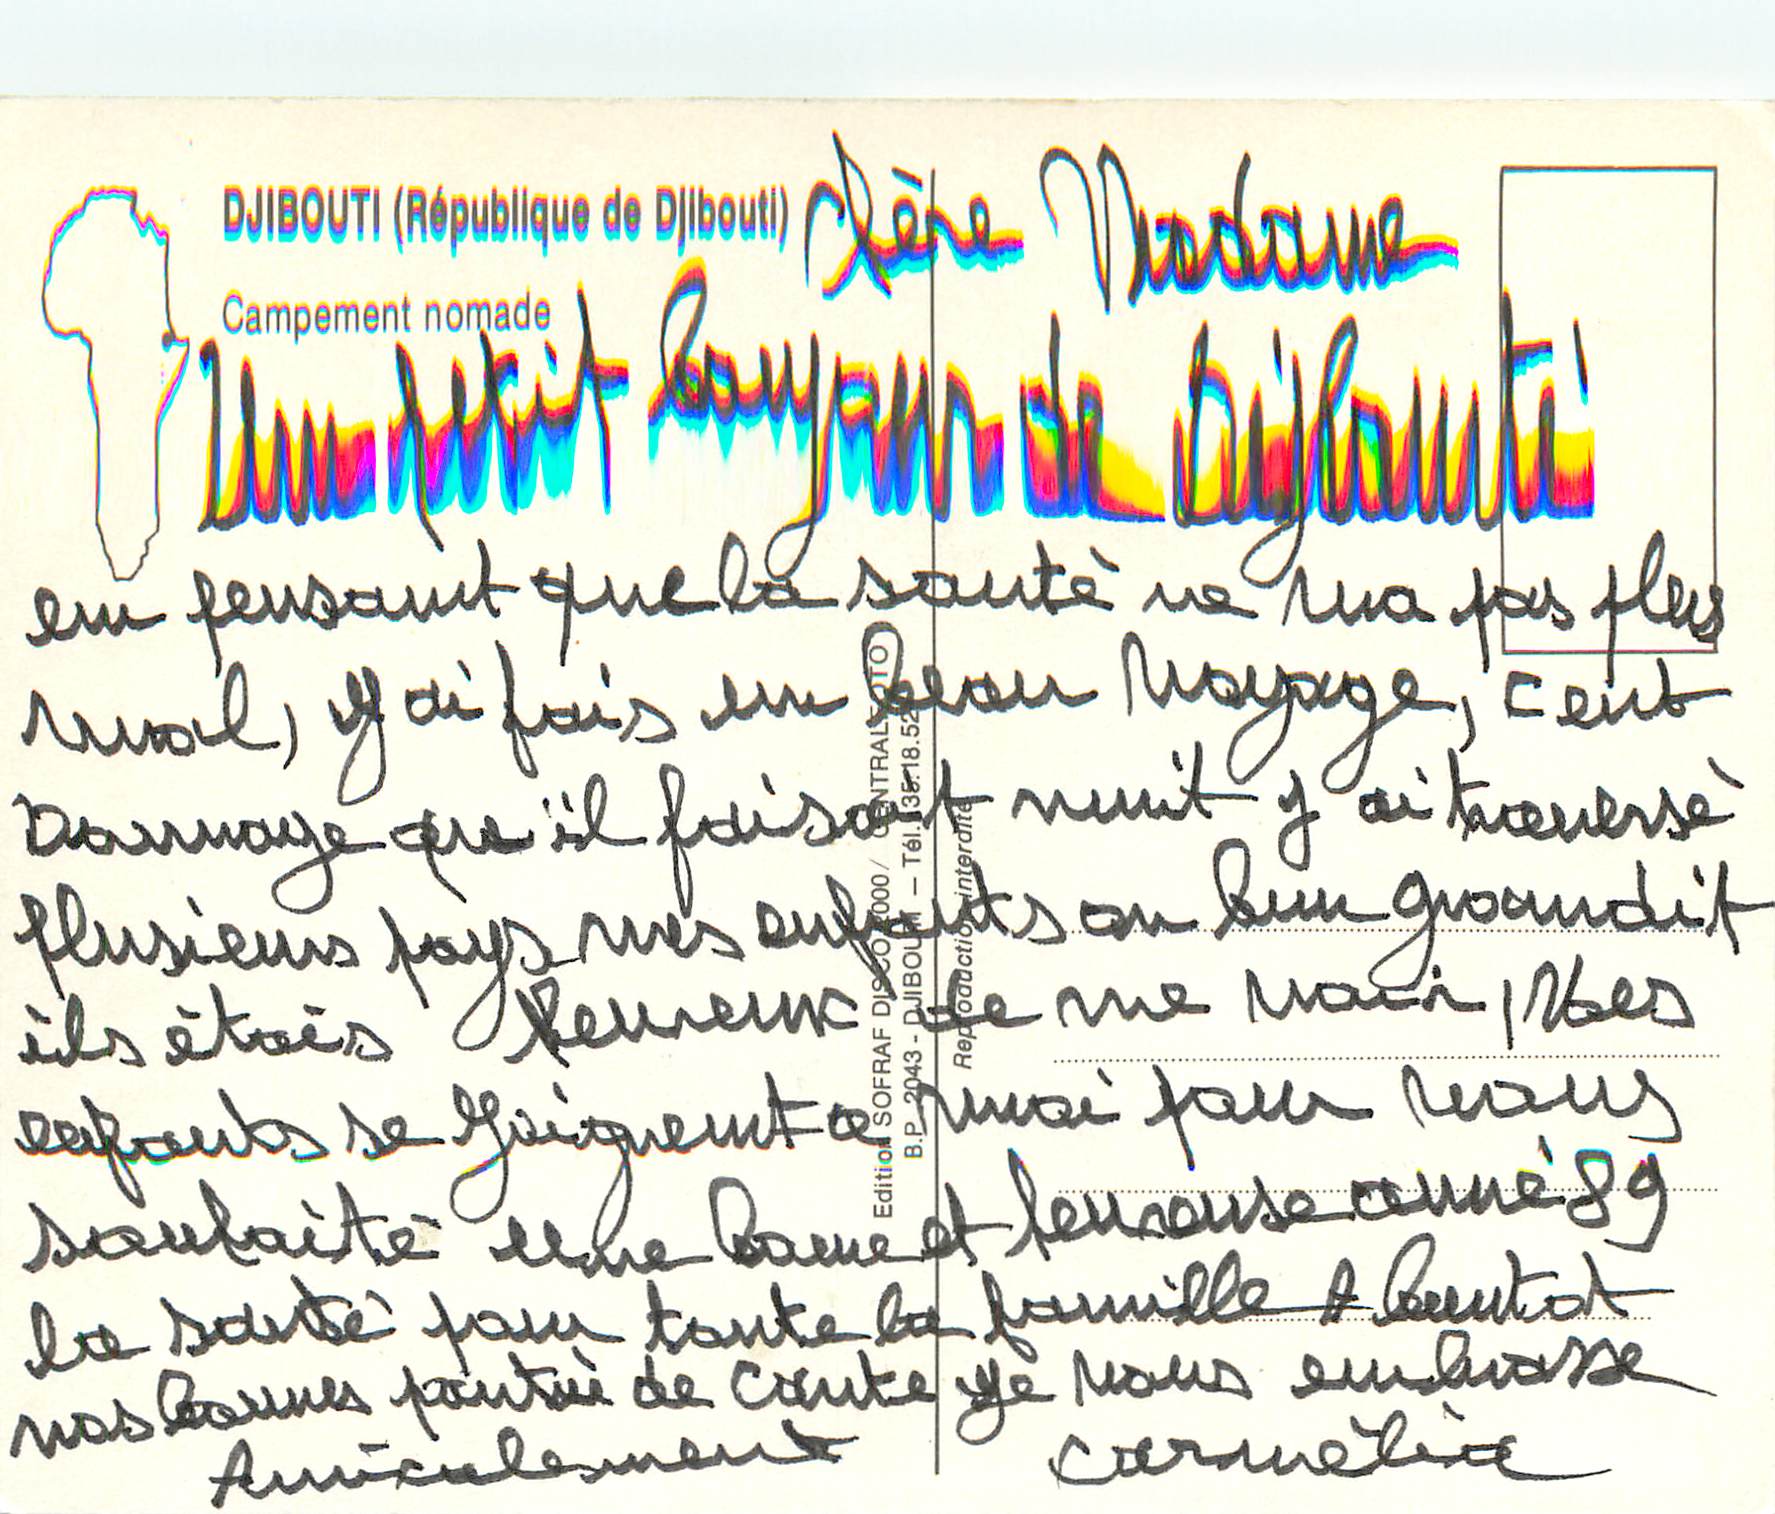 DJIBOUTI (République de Djibouti)
Campement nomade
Chère Madame
Un petit bonjour de Djibouti
en pensant que la santé ne va pas plus
mal, j'ai fais un beau voyage, c'ent
Dommage qu'il faisait nuit j'ai traversé
plusieurs pays mes enfants on bien grandit
ils étais heureux de me voir, Mes
enfants se joignent a moi pour vous
souhaité une bonne et heureuse anné 89
la santé pour toute la famille A bientot
nos bonnes partie de carte je vous embrasse
Amicalement Carmélia
Edition SOFRAF DISCO 2000 / CENTRAL FOTO
B.P. 2043 - DJIBOUTI — Tél. 35.18.52
Reproduction interdite